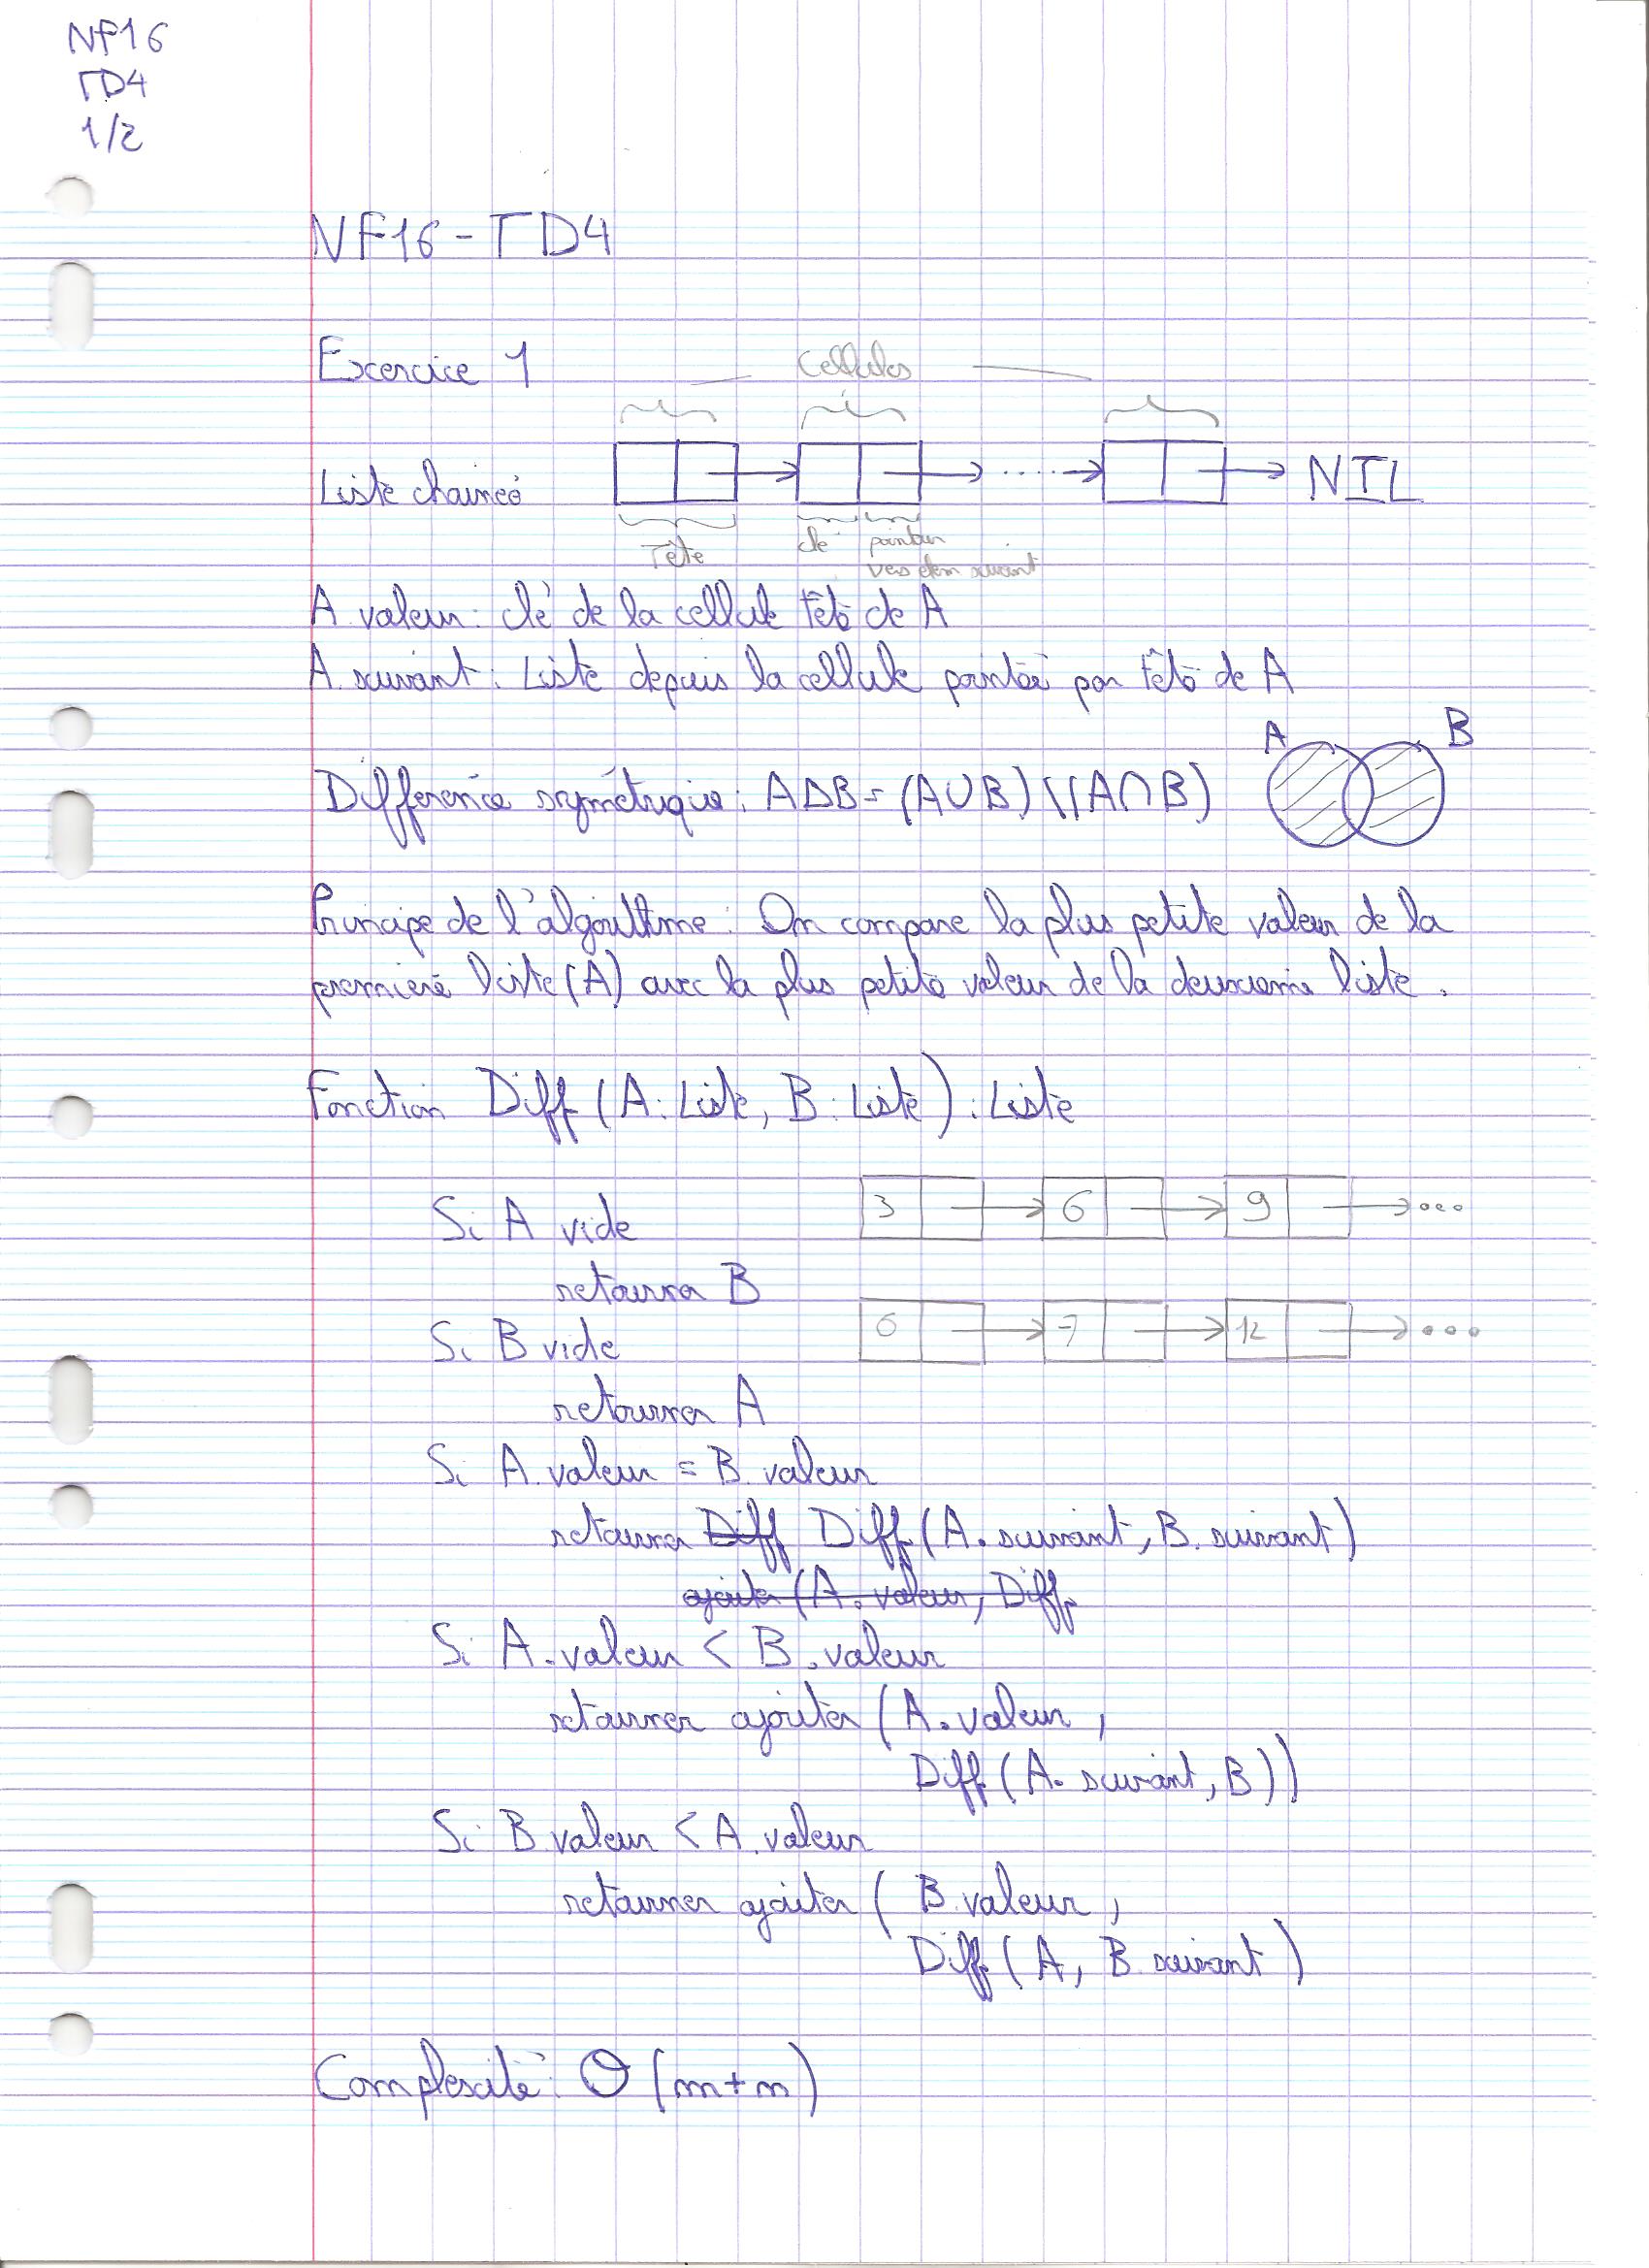 NF16
TD4
1/2
NF16 - TD4
Excercice 1
Cellules
Liste chaineé
NIL
Tête
clé
pointeur
vers elem suivant
A.valeur : clé de la cellule tête de A
A.suivant : Liste depuis la cellule pointée par tête de A
Différence symétrique : AΔB = (A∪B) \ (A∩B)
A
B
Principe de l'algorithme : On compare la plus petite valeur de la
première liste (A) avec la plus petite valeur de la deuxième liste.
Fonction Diff (A : Liste, B : Liste) : Liste
Si A vide
3 6 9 ...
retourner B
Si B vide
6 7 12 ...
retourner A
Si A.valeur = B.valeur
retourner Diff Diff (A.suivant, B.suivant)
ajouter (A.valeur, Diff
Si A.valeur < B.valeur
retourner ajouter (A.valeur,
Diff (A.suivant, B))
Si B.valeur < A.valeur
retourner ajouter ( B.valeur,
Diff (A, B.suivant)
Complexité : O (m+n)